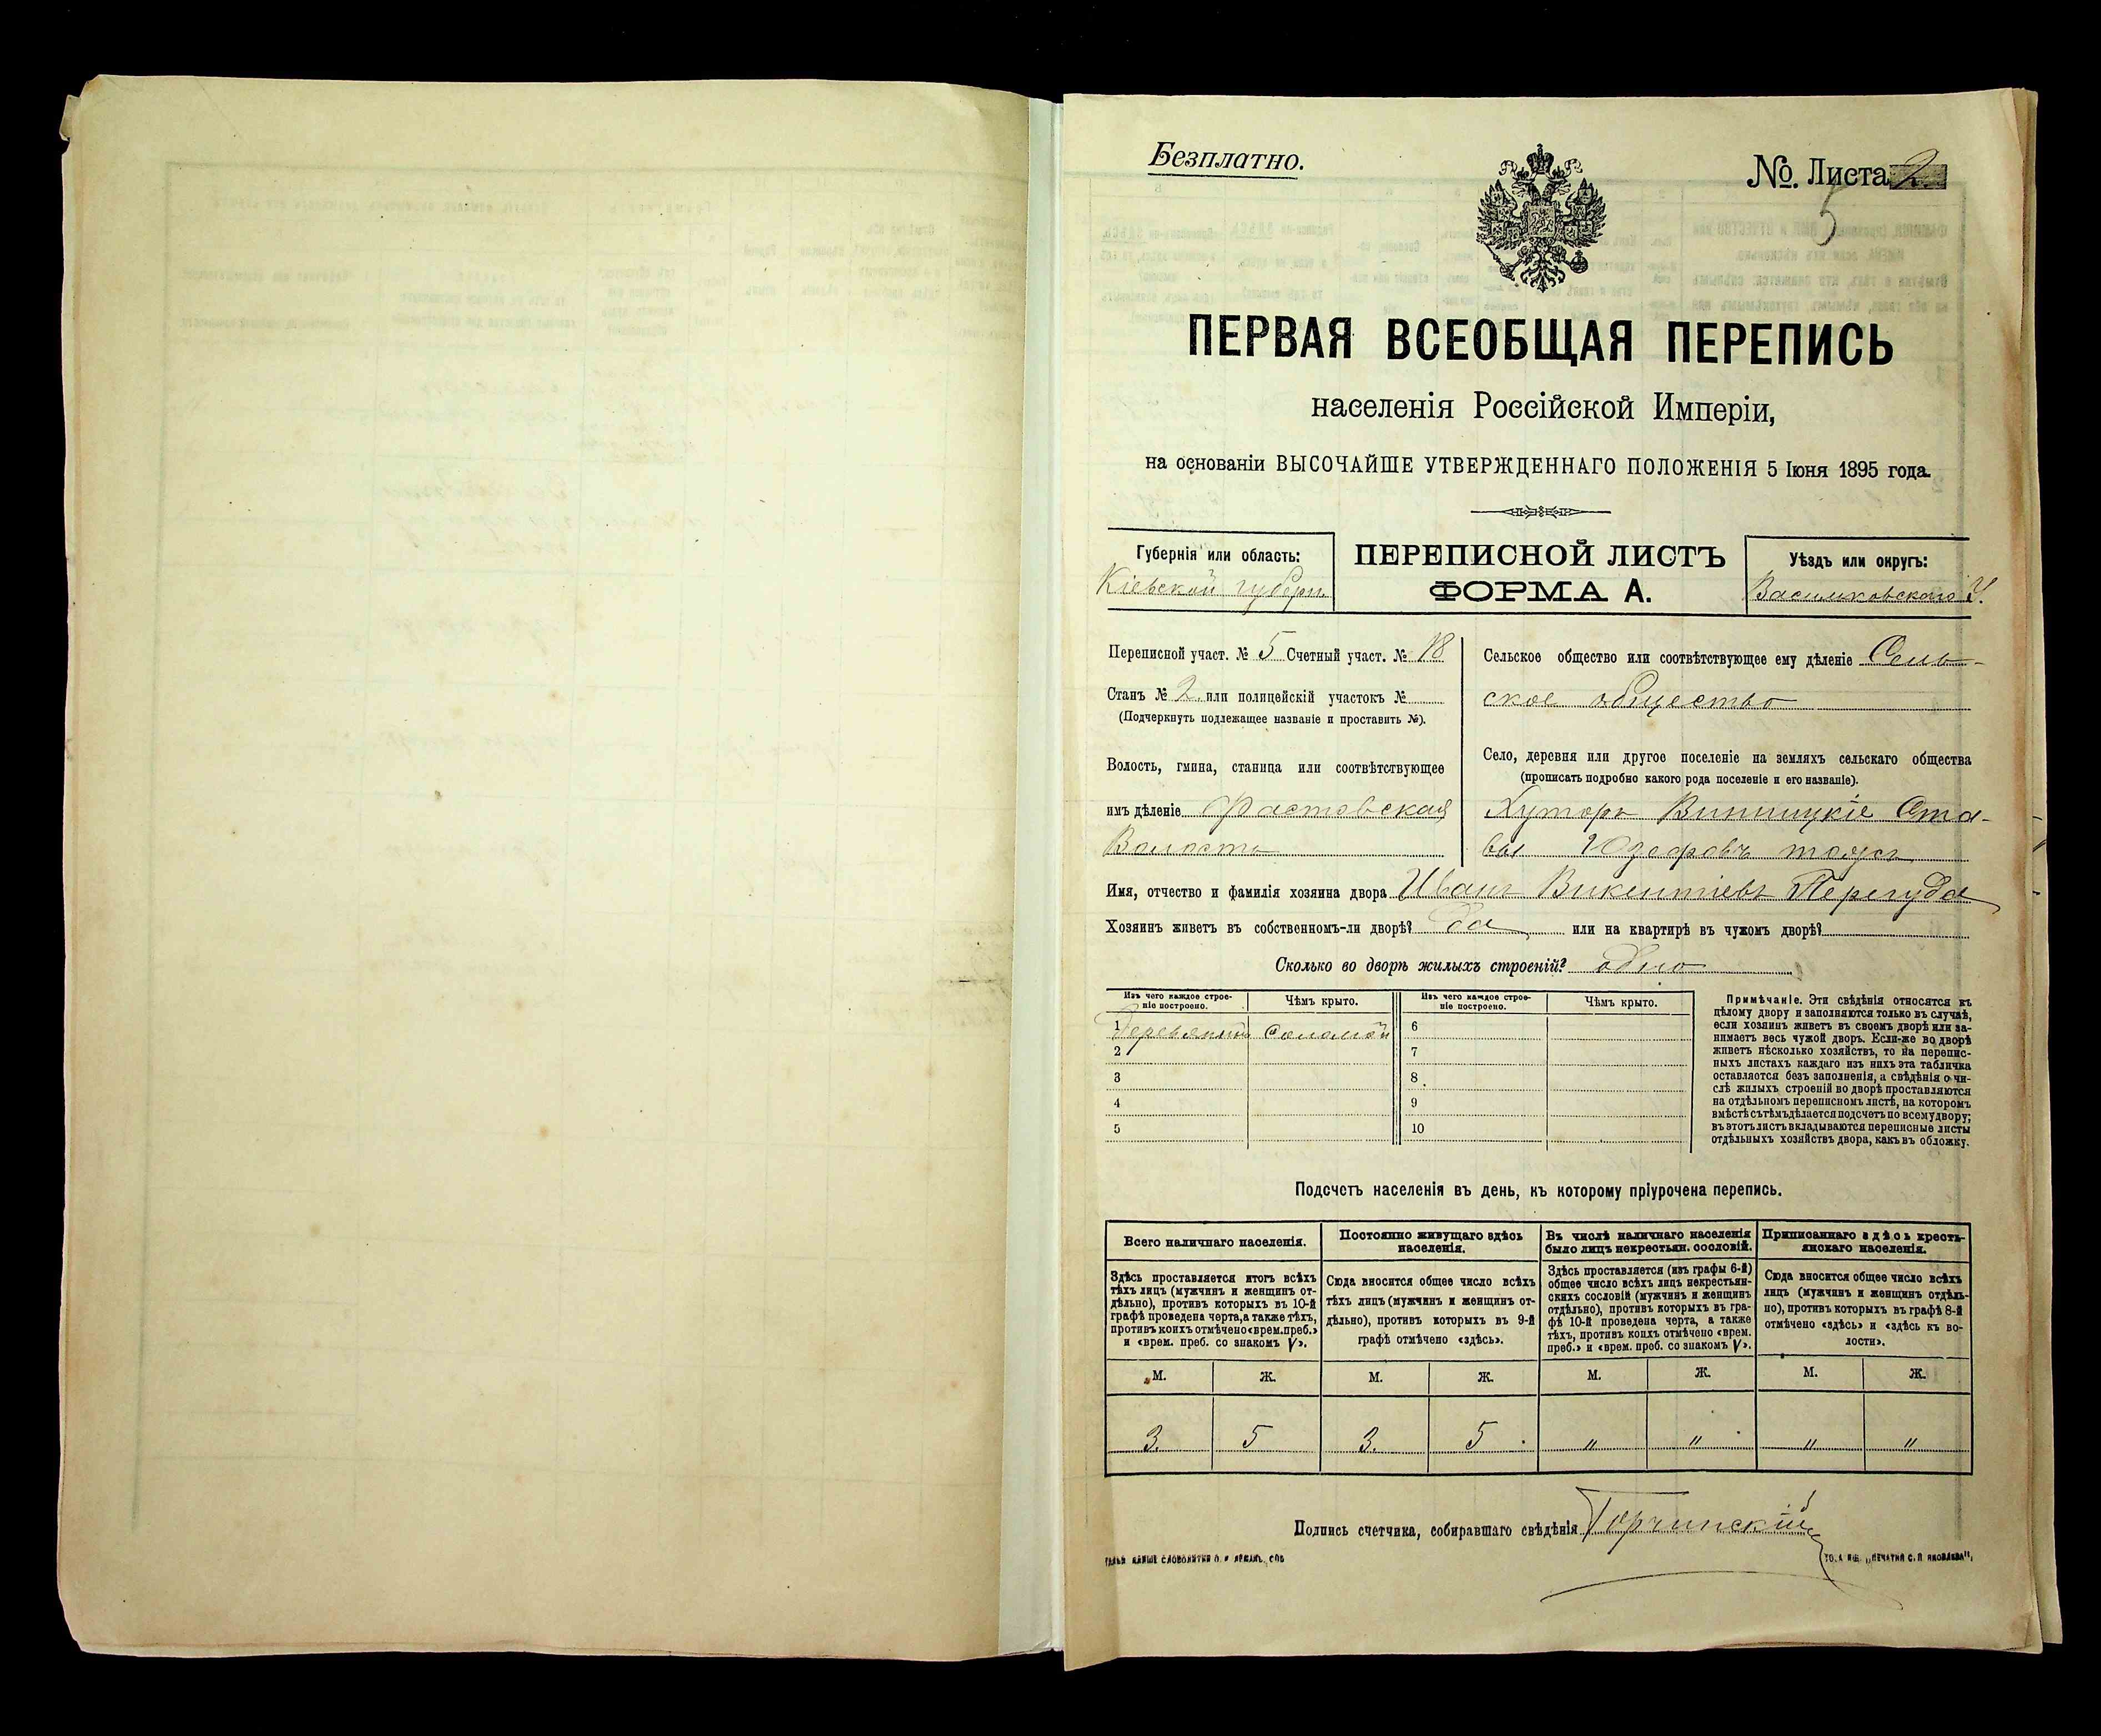 Безплатно.
№. Листа 2
5
ПЕРВАЯ ВСЕОБЩАЯ ПЕРЕПИСЬ
населенія Россійской Имперіи,
на основаніи ВЫСОЧАЙШЕ УТВЕРЖДЕННАГО ПОЛОЖЕНІЯ 5 Іюня 1895 года.
Губернія или область:
Кіевской губерн
ПЕРЕПИСНОЙ ЛИСТЪ
ФОРМА А.
Уѣздъ или округъ:
Васильковскаго У.
Переписной участ. № 5 Счетный участ. № 18
Станъ № 2 или полицейскій участокъ №
(Подчеркнуть подлежащее названіе и проставить №).
Волость, гмина, станица или соотвѣтствующее
имъ дѣленіе Фастовская
Волость
Сельское общество или соотвѣтствующее ему дѣленіе Сель-
ское общество
Село, деревня или другое поселеніе на земляхъ сельскаго общества
(прописать подробно какого рода поселеніе и его названіе).
Хуторъ Винницкіе Ста-
вы Юзефовъ тожъ
Имя, отчество и фамилія хозяина двора Иванъ Викентіевъ Перегуда
Хозяинъ живетъ въ собственномъ-ли дворѣ? да или на квартирѣ въ чужомъ дворѣ?
Сколько во дворѣ жилыхъ строеній? одно
Изъ чего каждое строе-
ніе построено.
Чѣмъ крыто.
Изъ чего каждое строе-
ніе построено.
Чѣмъ крыто.
1 Деревянный Соломой 6
2 7
3 8
4 9
5 10
Примѣчаніе. Эти свѣдѣнія относятся къ
цѣлому двору и заполняются только въ случаѣ,
если хозяинъ живетъ въ своемъ дворѣ или за-
нимаетъ весь чужой дворъ. Если-же во дворѣ
живетъ нѣсколько хозяйствъ, то на перепис-
ныхъ листахъ каждаго изъ нихъ эта табличка
оставляется безъ заполненія, а свѣдѣнія о чи-
слѣ жилыхъ строеній во дворѣ проставляются
на отдѣльномъ переписномъ листѣ, на которомъ
вмѣстѣ съ тѣмъ дѣлается подсчетъ по всему двору;
въ этотъ листъ вкладываются переписные листы
отдѣльныхъ хозяйствъ двора, какъ въ обложку.
Подсчетъ населенія въ день, къ которому пріурочена перепись.
Всего наличнаго населенія.
Постоянно живущаго здѣсь
населенія.
Въ числѣ наличнаго населенія
было лицъ некрестьян. сословій.
Приписаннаго здѣсь кресть-
янскаго населенія.
Здѣсь проставляется итогъ всѣхъ
тѣхъ лицъ (мужчинъ и женщинъ от-
дѣльно), противъ которыхъ въ 10-й
графѣ проведена черта, а также тѣхъ,
противъ коихъ отмѣчено «врем. преб.»
и «врем. преб. со знакомъ V».
Сюда вносится общее число всѣхъ
тѣхъ лицъ (мужчинъ и женщинъ от-
дѣльно), противъ которыхъ въ 9-й
графѣ отмѣчено «здѣсь».
Здѣсь проставляется (изъ графы 6-й)
общее число всѣхъ лицъ некрестьян-
скихъ сословій (мужчинъ и женщинъ
отдѣльно), противъ которыхъ въ гра-
фѣ 10-й проведена черта, а также
тѣхъ, противъ коихъ отмѣчено «врем.
преб.» и «врем. преб. со знакомъ V».
Сюда вносится общее число всѣхъ
лицъ (мужчинъ и женщинъ отдѣль-
но), противъ которыхъ въ графѣ 8-й
отмѣчено «здѣсь» и «здѣсь къ во-
лости».
М. Ж. М. Ж. М. Ж. М. Ж.
3. 5 3. 5 " " " "
Подпись счетчика, собиравшаго свѣдѣнія